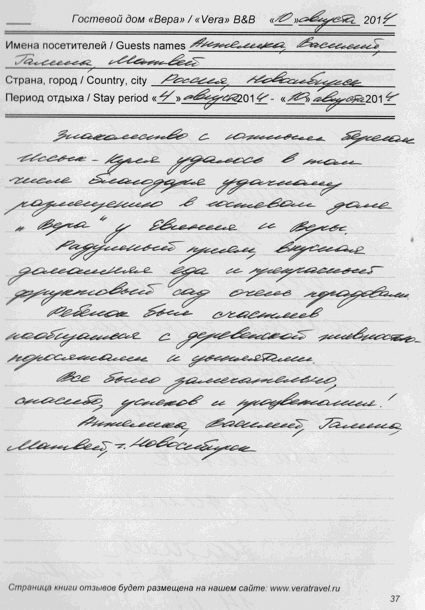 Гостевой дом «Вера» / «Vera» B&B «10» августа 2014
Имена посетителей / Guests names Анжелика, Василий,
Галина, Матвей
Страна, город / Country, city Россия, Новосибирск
Период отдыха / Stay period «4» августа 2014 - «10» августа 2014
Знакомство с южным берегом
Иссык-Куля удалось в том
числе благодаря удачному
размещению в гостевом доме
„Вера" у Евгения и Веры.
Радушный прием, вкусная
домашняя еда и прекрасный
фруктовый сад очень порадовали.
Ребенок был счастлив
пообщаться с деревенской живностью-
поросятами и цыплятами.
Все было замечательно,
спасибо, успехов и процветания!
Анжелика, Василий, Галина,
Матвей, г. Новосибирск
Страница книги отзывов будет размещена на нашем сайте: www.veratravel.ru
37